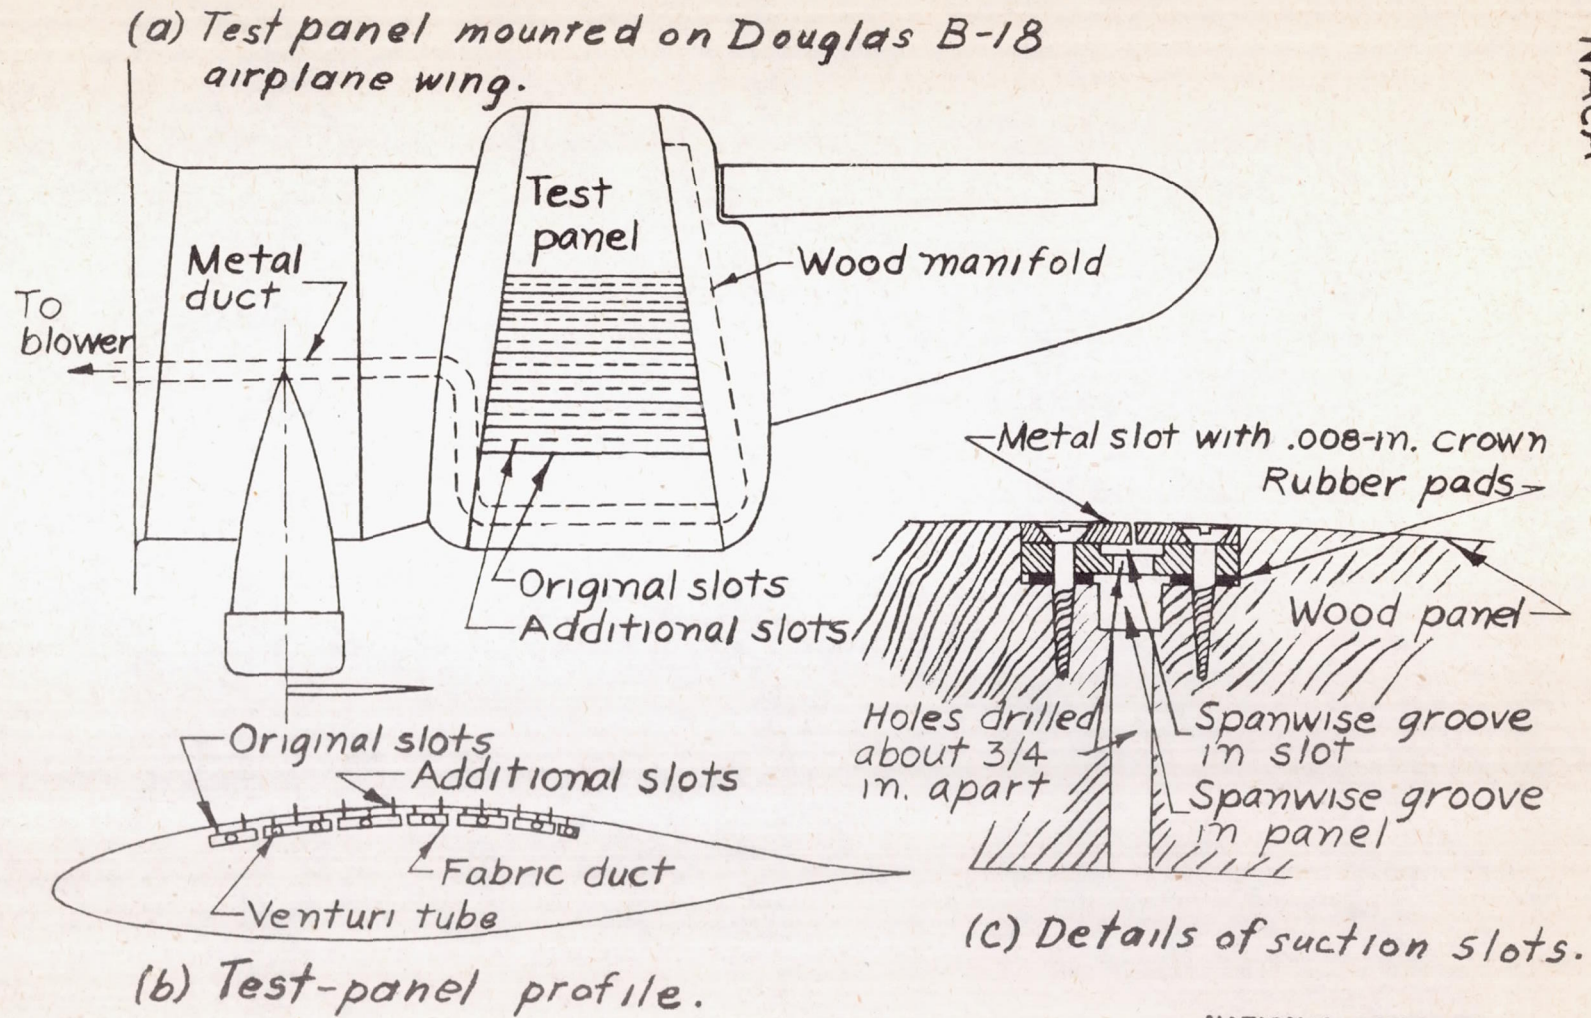 (a) Test panel mounted on Douglas B-18
airplane wing.
NACA
Test
panel
Metal
duct
To
blower
Wood manifold
Original slots
Additional slots
Metal slot with .008-in. crown
Rubber pads
Wood panel
Holes drilled
about 3/4
in. apart
Spanwise groove
in slot
Spanwise groove
in panel
(c) Details of suction slots.
Original slots
Additional slots
Fabric duct
Venturi tube
(b) Test-panel profile.